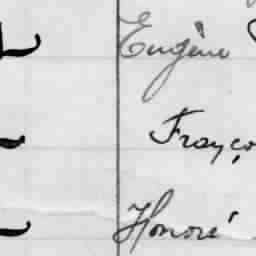 Eugène
Franço
Honoré